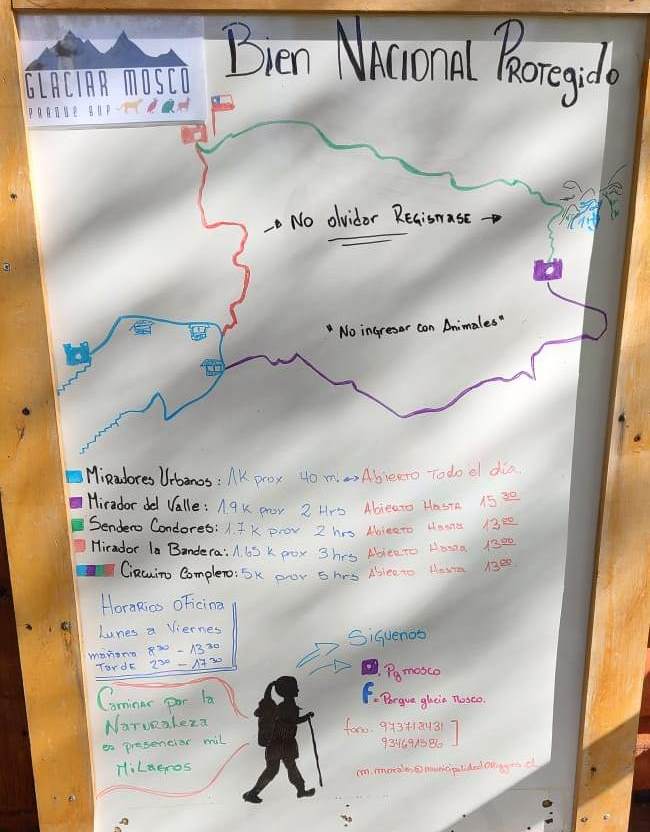 GLACIAR MOSCO
PARQUE BNP
Bien Nacional Protegido
No olvidar Registrase
"No ingresar con Animales"
Miradores Urbanos: 1K prox 40 mi Abierto Todo el día.
Mirador del Valle: 1.9 K prox 2 Hrs Abierto Hasta 15 30
Sendero Condores: 1.7 K prox 2 hrs Abierto Hasta 13 00
Mirador la Bandera: 1.65 K prox 3 hrs Abierto Hasta 13 00
Circuito Completo: 5K prox 5 hrs Abierto Hasta 13 00
Horarios oficina
Lunes a Viernes
mañana 8 30 - 13 30
Tarde 2 30 - 17 30
Caminar por la
Naturaleza
es presenciar mil
Milagros
Siguenos
Pgmosco
f = Parque glacia Mosco.
fono. 973718431
934691586